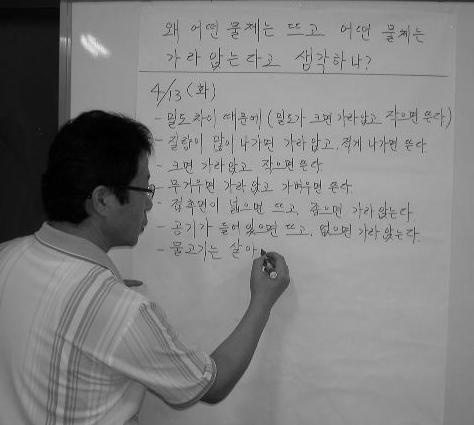 왜 어떤 물체는 뜨고 어떤 물체는
가라 앉는다고 생각하나?
4/13 (화)
- 밀도차이 때문에 (밀도가 크면 가라앉고 작으면 뜬다)
- 질량이 많이 나가면 가라앉고, 적게 나가면 뜬다.
- 크면 가라앉고 작으면 뜬다.
- 무거우면 가라앉고 가벼우면 뜬다.
- 접촉면이 넓으면 뜨고, 좁으면 가라앉는다.
- 공기가 들어있으면 뜨고, 없으면 가라앉는다.
- 물고기는 살아